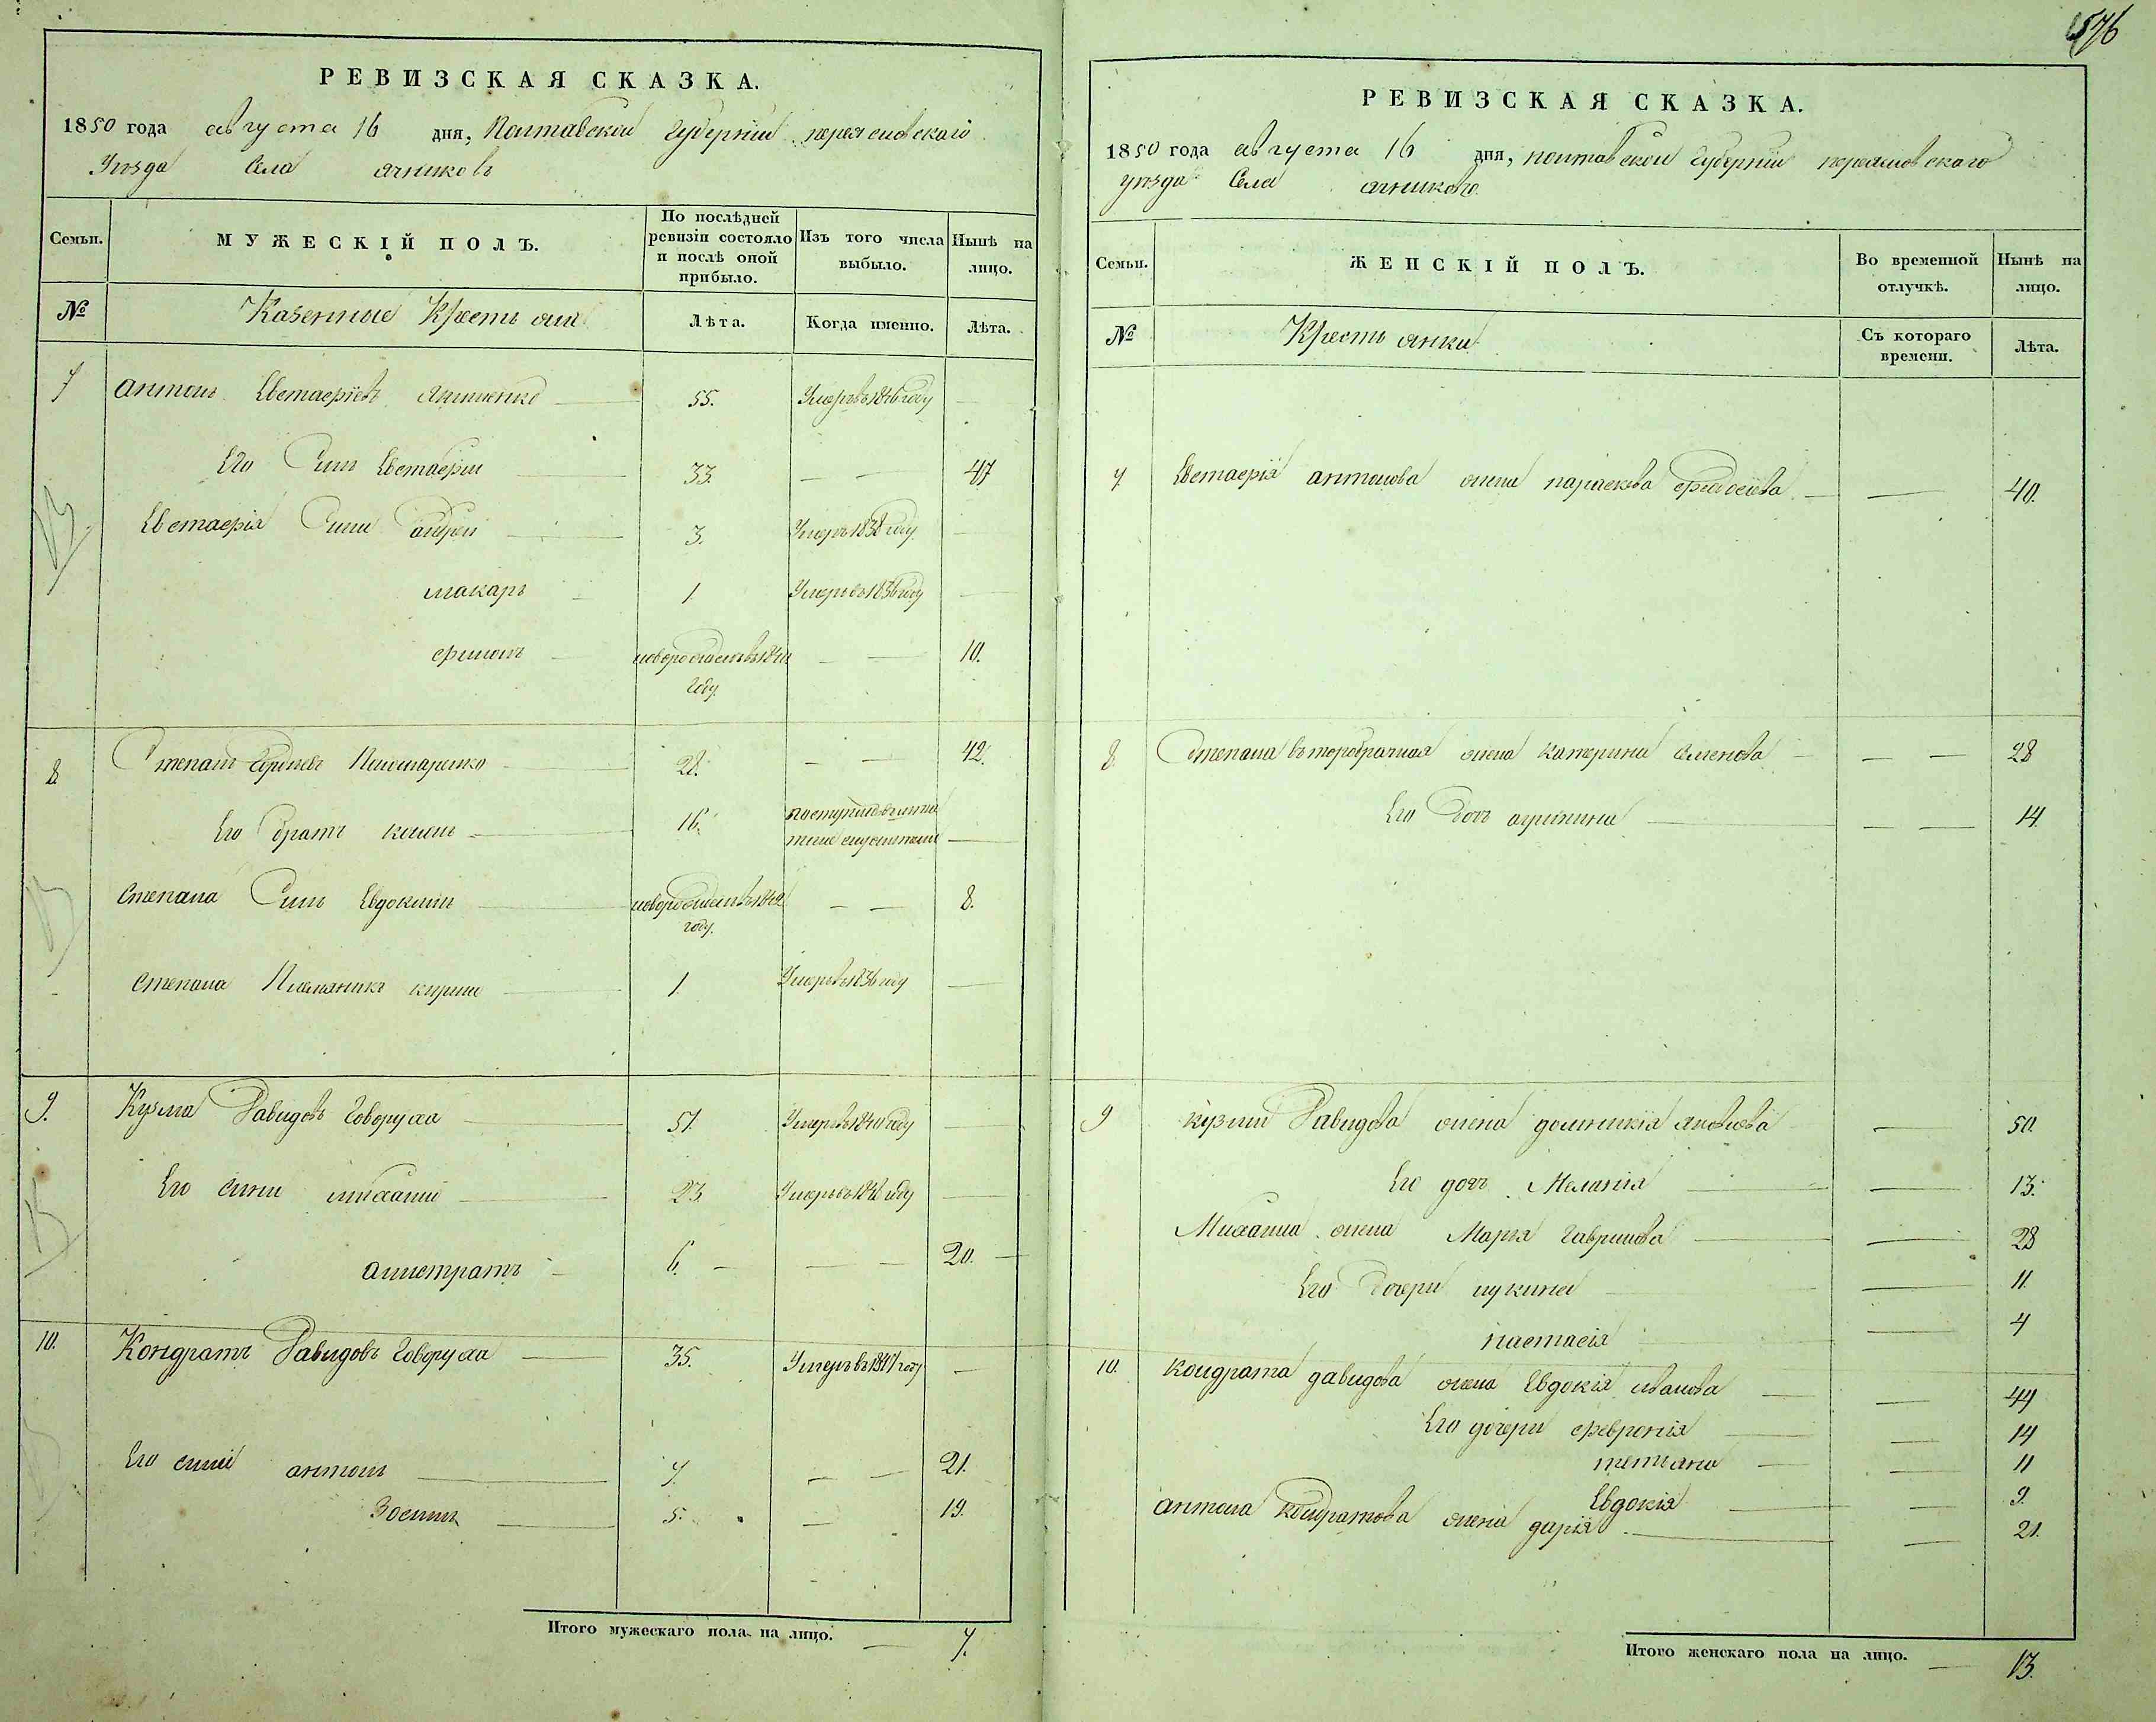 576
РЕВИЗСКАЯ СКАЗКА.
1850 года августа 16 дня, Полтавской Губернии переясловского
Уезда Села ячников
Семьи.
МУЖЕСКІЙ ПОЛЪ.
По послѣдней ревизіи состояло и послѣ оной прибыло.
Изъ того числа выбыло.
Нынѣ на лицо.
№
Казенные Крестьяни
Лѣта.
Когда именно.
Лѣта.
7 антонъ Евстаеріевъ 55. Умеръ въ 1846 году
Его Синъ Евстаерій 33. 47
Евстаерія Сини андрей 3. Умеръ 1838 году
макаръ 1 Умеръ въ 1836 году
новорожденъ въ 1840 году 10.
8 Степанъ 28. 42.
Его братъ 16.
Степана Синъ Евдокимъ новорожденъ въ 1842 году. 8.
Степана Племяникъ 1 Умеръ въ 1836 году
9. Кузма Давидовъ Говоруха 51. Умеръ въ 1840 году
Его сини михаилъ 23 Умеръ въ году
алистратъ 6. 20.
10. Кондратъ Давидовъ Говоруха 35. Умеръ въ 1847 году
Его сини антонъ 7. 21.
Зосимъ 5. 19.
Итого мужескаго пола на лицо. 7.
РЕВИЗСКАЯ СКАЗКА.
1850 года августа 16 дня, полтавской Губерніи переясловскаго
уезда Села
Семьи.
ЖЕНСКІЙ ПОЛЪ.
Во временной отлучкѣ.
Нынѣ на лицо.
№
Крестьянки
Съ котораго времени.
Лѣта.
7 Евстаерія антонова жена параскева 40.
8 Степана второбрачная жена катерина семенова 28
Его дочъ 14.
9 кузми Давидова жена домникія яковлева 50.
Его дочъ Меланія 13.
Михаила жена Марія Гаврилова 28
Его дочери лукина 11.
настасія 4
10. кондрата давидова жена Евдокія иванова 44
Его дочери февронія 14
тетіяна 11
Евдокія 9.
антона кондратова жена дарія 21.
Итого женскаго пола на лицо. 13.